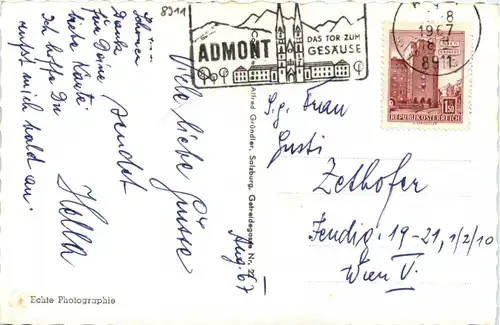 8911
ADMONT
DAS TOR ZUM
GESÄUSE
-8
1967
18
8911
1.50
REPUBLIK ÖSTERREICH
Schönen
Dank
für Deine
liebe Karte.
Ich hoffe Du
rufst mich bald an.
Viele liebe Grüsse
sendet
Hella
Aug. 67
Alfred Gründler, Salzburg, Getreidegasse Nr.
S.g. Frau
Gusti
Zethofer
Fendig. 19-21, 1/2/10
Wien V.
Echte Photographie